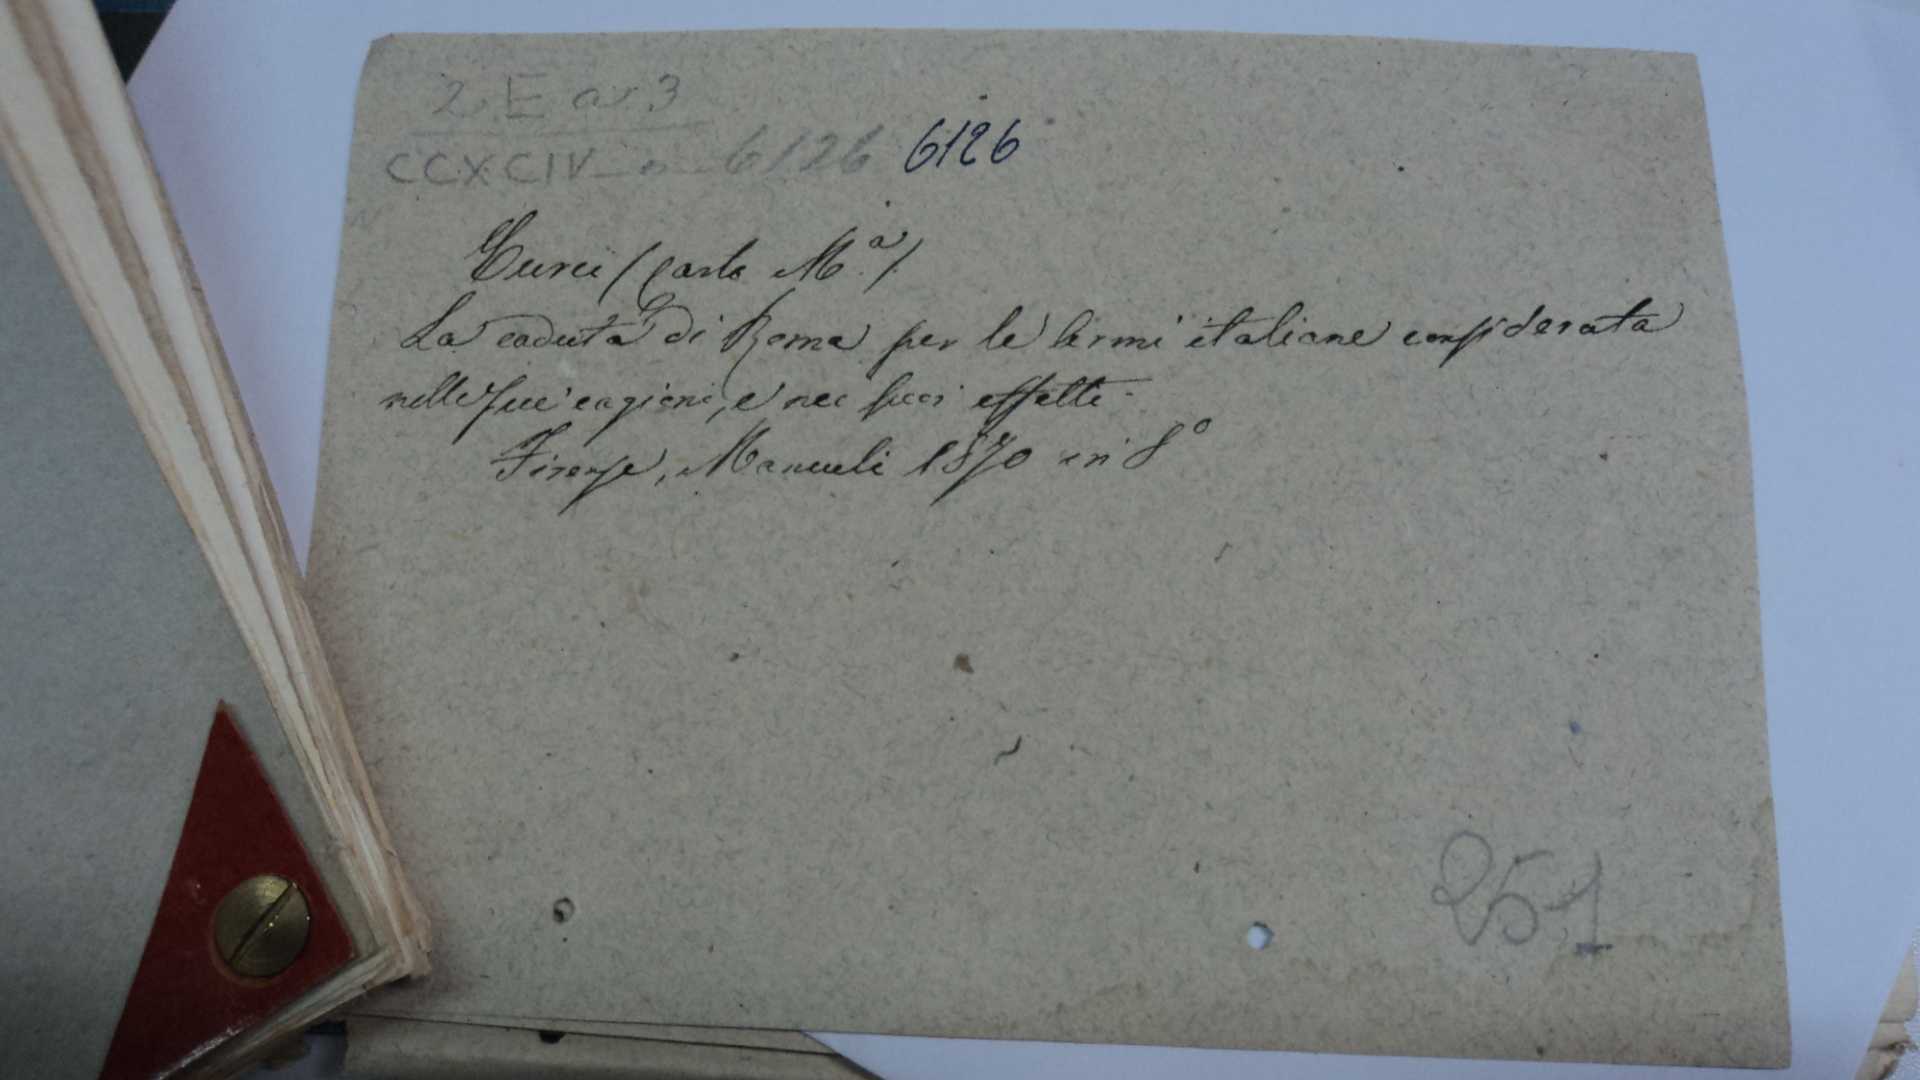 2. E a r 3
CCXCIV - n - 6126 6126
Curci (Carlo M.ª)
La caduta di Roma per le armi italiane considerata
nelle sue cagioni, e nei suoi effetti.
Firenze, Manueli 1870 in 8º
251